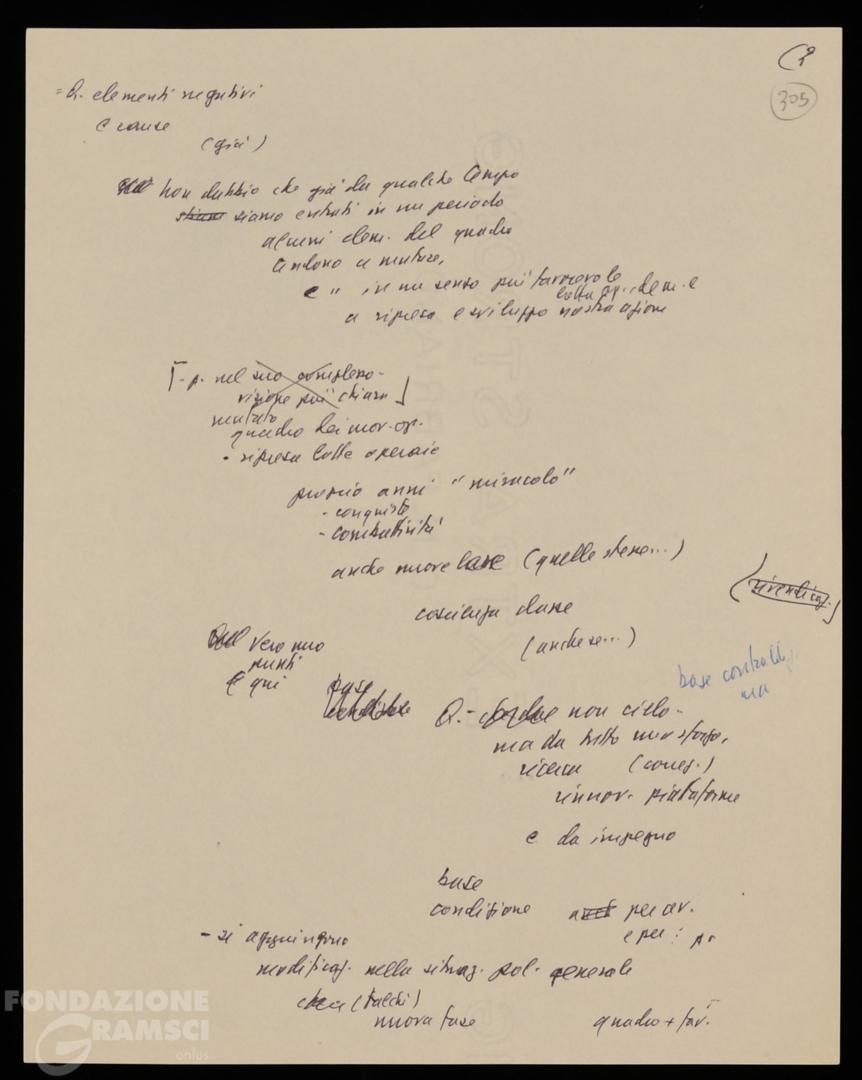 (2
305
= Q. elementi negativi
e cause
(già)
non dubbio che già da qualche tempo
siamo entrati in un periodo
alcuni elem. del quadro
tendono a mutare,
e " in un senso più favorevole
lotta op. e dem. e
a ripresa e sviluppo nostra azione
- p. nel suo complesso -
visione più chiara
mutato
quadro dei mov. op.
- ripresa lotte operaie
proprio anni "miracolo"
- conquiste
- combattività
anche nuove (quelle stesse...)
(rivendicaz.)
coscienza classe
Vero nuo
(anche se...)
punti
E qui
base contratt.
ma
base
Q. - non cielo -
ma da tutto uno sforzo,
ricerca (coneg.)
rinnov. piattaforme
e da impegno
base
condizione per av.
e per :
- si aggiungono
modificaz. nella situaz. pol. generale
(balchi)
nuova fase quadro + fav.
FONDAZIONE
GRAMSCI
onlus